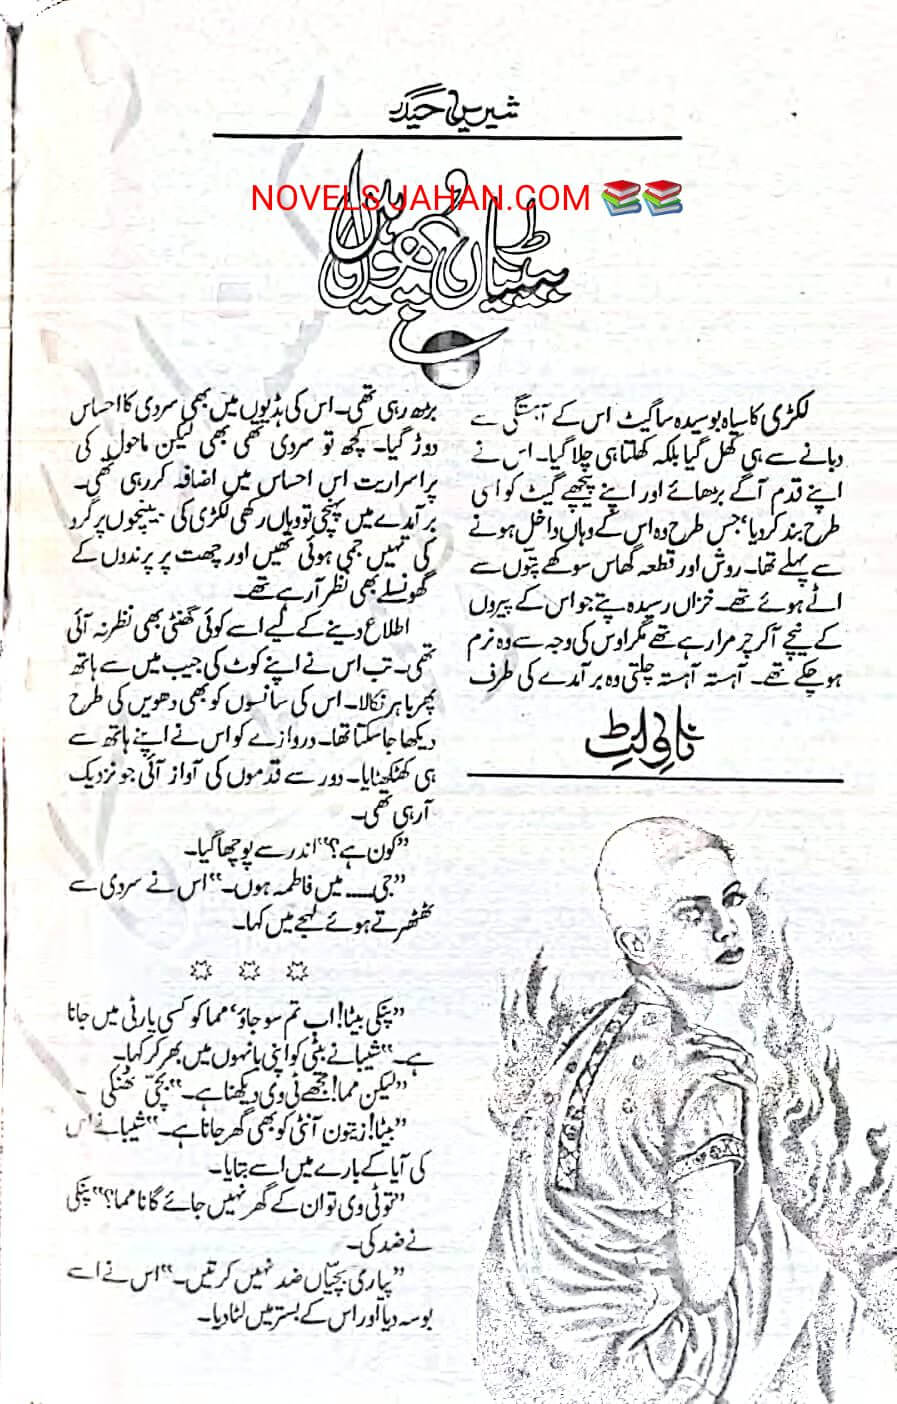 شیریں حیدر
NOVELS JAHAN.COM
بیٹیاں پھول ہیں
لکڑی کا سیاہ بوسیدہ سا گیٹ اس کے آہستگی سے
دبانے سے ہی کھل گیا بلکہ کھلتا ہی چلا گیا۔ اس نے
اپنے قدم آگے بڑھائے اور اپنے پیچھے گیٹ کو اسی
طرح بند کر دیا‘ جس طرح وہ اس کے وہاں داخل ہونے
سے پہلے تھا۔ روش اور قطعہ گھاس سوکھے پتوں سے
اٹے ہوئے تھے۔ خزاں رسیدہ پتے جو اس کے پیروں
کے نیچے آ کر چر مرا رہے تھے مگر اوس کی وجہ سے وہ نرم
ہو چکے تھے۔ آہستہ آہستہ چلتی وہ برآمدے کی طرف
ناولٹ
بڑھ رہی تھی۔ اس کی ہڈیوں میں بھی سردی کا احساس
دوڑ گیا۔ کچھ تو سردی تھی بھی لیکن ماحول کی
پراسراریت اس احساس میں اضافہ کر رہی تھی۔
برآمدے میں پہنچی تو وہاں رکھی لکڑی کی بینچوں پر گرد
کی تہیں جمی ہوئی تھیں اور چھت پر پرندوں کے
گھونسلے بھی نظر آ رہے تھے۔
اطلاع دینے کے لیے اسے کوئی گھنٹی بھی نظر نہ آئی
تھی۔ تب اس نے اپنے کوٹ کی جیب میں سے ہاتھ
پھر باہر نکالا۔ اس کی سانسوں کو بھی دھویں کی طرح
دیکھا جا سکتا تھا۔ دروازے کو اس نے اپنے ہاتھ سے
ہی کھٹکھٹایا۔ دور سے قدموں کی آواز آئی جو نزدیک
آ رہی تھی۔
”کون ہے؟“ اندر سے پوچھا گیا۔
”جی..... میں فاطمہ ہوں۔“ اس نے سردی سے
ٹھٹھرتے ہوئے لہجے میں کہا۔
”پنکی بیٹا! اب تم سو جاؤ‘ مما کو کسی پارٹی میں جانا
ہے۔“ شیبا نے بیٹی کو اپنی بانہوں میں بھر کر کہا۔
”لیکن مما! مجھے ٹی وی دیکھنا ہے۔“ بچی ٹھنکی۔
”بیٹا! زیتون آنٹی کو بھی گھر جانا ہے۔“ شیبا نے اس
کی آیا کے بارے میں اسے بتایا۔
”تو ٹی وی تو ان کے گھر نہیں جائے گا نا مما؟“ پنکی
نے ضد کی۔
”پیاری بچیاں ضد نہیں کرتیں۔“ اس نے اسے
بوسہ دیا اور اس کے بستر میں لٹا دیا۔